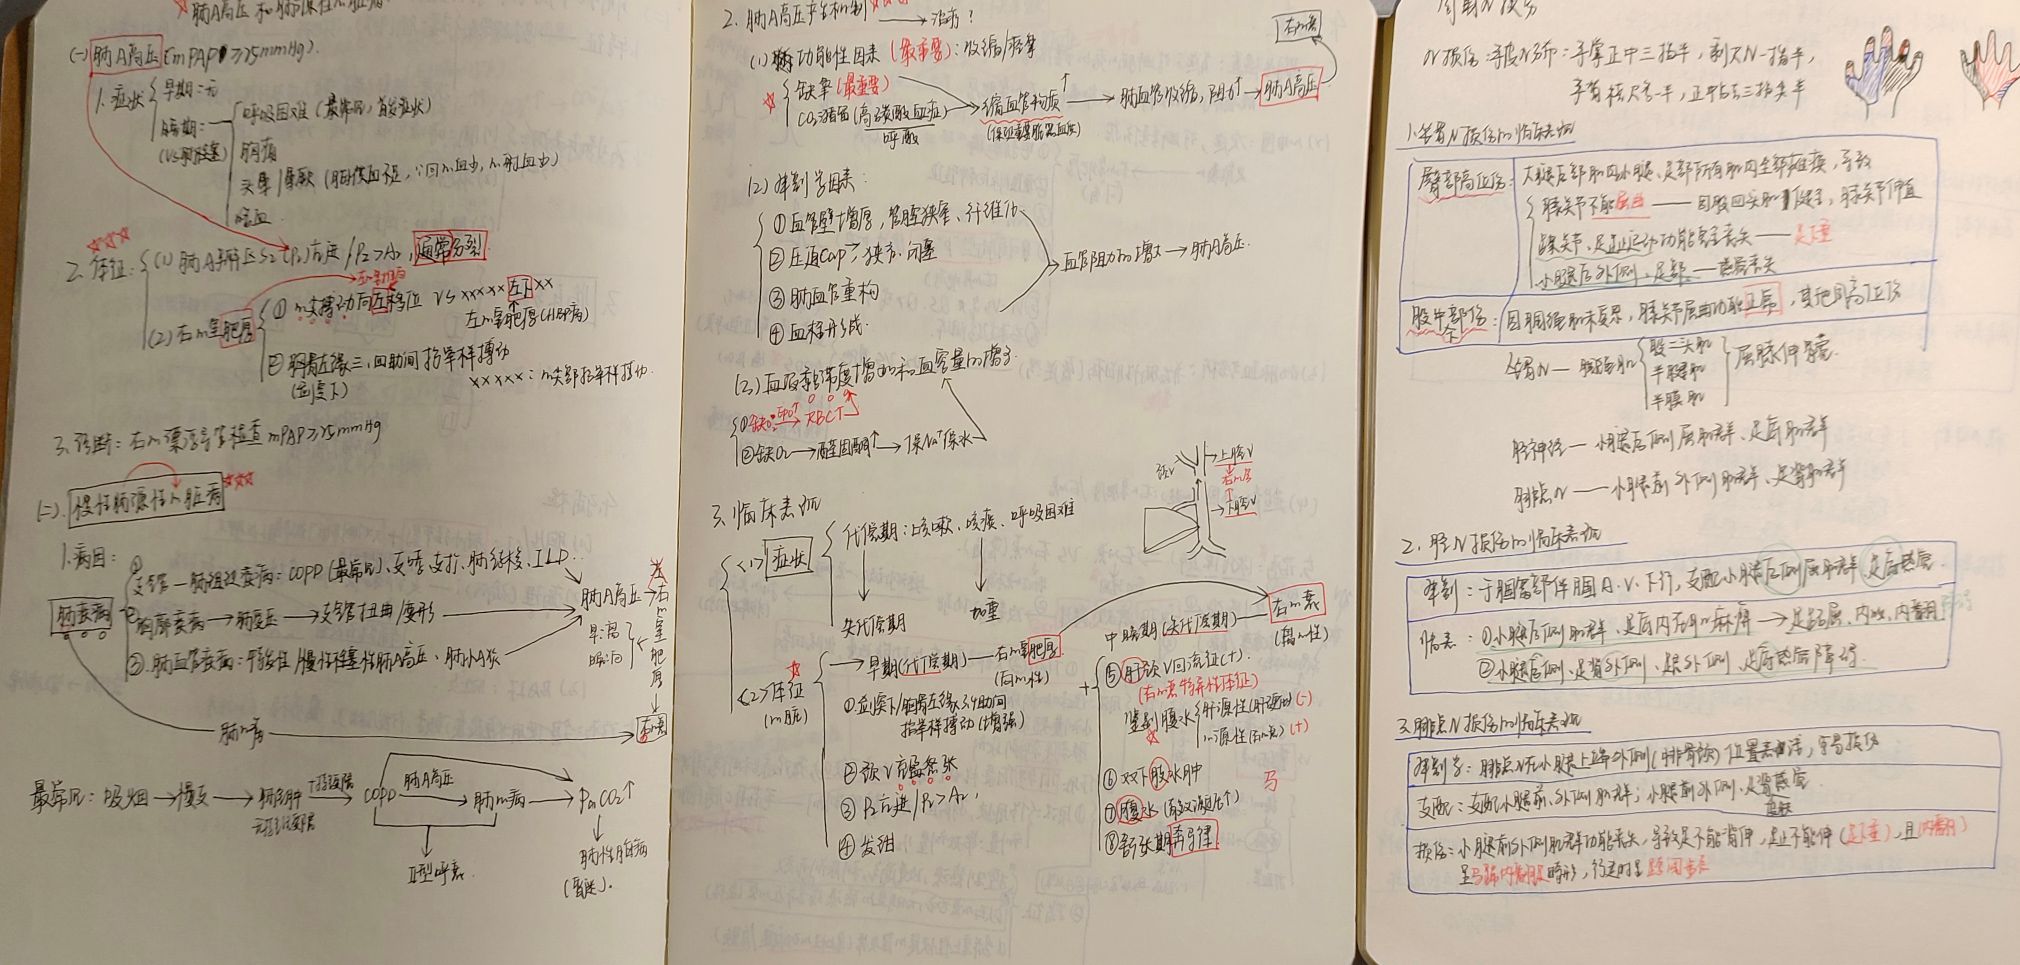 肺A高压和肺源性心脏病
(一) 肺A高压 (mPAP≥25mmHg).
1. 症状
早期:无
晚期: (VS肺栓塞)
呼吸困难 (最常见, 首发症状)
胸痛
头晕/晕厥 (脑供血不足, ∵回心血少, 心射血少)
咯血.
2. 体征:
(1) 肺A瓣区S2(P2)亢进/P2>A2, 通常分裂
(2) 右心室肥厚
① 心尖搏动向左移位 VS ×××××左下××
左心室肥厚(HBP病)
② 胸骨左缘三、四肋间抬举样搏动
(剑突下)
×××××: 心尖部抬举样搏动.
3. 诊断: 右心漂浮导管检查 mPAP≥25mmHg
(二). 慢性肺源性心脏病
1. 病因:
肺衰病
① 支气管—肺组织疾病: COPD (最常见)、支哮、支扩、肺结核、ILD...
② 胸廓疾病→肺受压→支气管扭曲/变形
③. 肺血管疾病: 特发性/慢性栓塞性肺A高压、肺小A炎
肺A高压→右心室肥厚
右心衰
肺心病
最常见: 吸烟→慢支→肺气肿→COPD→肺心病→PaCO2↑
不可逆阻塞
肺A高压
II型呼衰.
肺性脑病
2. 肺A高压产生机制→治疗?
(1) 功能性因素 (最重要): 收缩/痉挛
缺氧 (最重要)
CO2潴留 (高碳酸血症)
呼酸
缩血管物质↑→肺血管收缩, 阻力↑→肺A高压
(保证重要脏器血供)
右心衰
(2) 解剖学因素:
① 血管壁增厚, 管腔狭窄、纤维化
② 压迫Cap→狭窄、闭塞
③ 肺血管重构
④ 血栓形成.
血管阻力增大→肺A高压.
(3) 血液黏稠度增加和血容量增多.
① 缺O2→EPO↑→RBC↑
② 缺O2→醛固酮↑→保Na+保水
颈V
上腔V
右心房
下腔V
3. 临床表现
<1> 症状
代偿期: 咳嗽、咳痰、呼吸困难
失代偿期
加重
<2> 体征
(心脏)
早期(代偿期)—右心室肥厚
① 剑突下/胸骨左缘3、4肋间
抬举样搏动 (增强)
② 颈V充盈怒张
③ P2亢进/P2>A2,
④ 发绀
中晚期 (失代偿期)→右心衰
⑤ 肝颈V回流征(+).
(右心衰特异性体征)
鉴别腹水
肝源性(肝硬化) (-)
心源性(右心衰) (+)
⑥ ××下肢水肿
⑦ 腹水
⑧ 舒张期奔马律
N损伤: 手按N分布: 手掌正中三指半, 剩尺N一指半,
手背桡尺各一半, 正中占去三指尖半
1. 坐骨N损伤的临床表现
臀部高位伤: 大腿后部肌肉小腿、足部所有肌肉全部瘫痪, 导致
膝关节不能屈曲——因股四头肌健全, 膝关节伸直
踝关节、足趾运动功能完全丧失——足下垂
小腿后外侧、足部——感觉丧失
股中部伤: 因腘绳肌未受累, 膝关节屈曲功能正常, 其他同高位伤
坐骨N—腘绳肌
股二头肌
半腱肌
半膜肌
屈膝伸髋.
胫神经—小腿后侧屈肌群、足底肌群
腓总N——小腿前外侧肌群、足背肌群
2. 胫N损伤的临床表现
解剖: 于腘窝部伴腘A.V.下行, 支配小腿后侧屈肌群 足底感觉
临表: ① 小腿后侧肌群、足底内在肌麻痹→足跖屈、内收、内翻
② 小腿后侧、足背外侧、跟外侧、足底感觉障碍.
3. 腓总N损伤的临床表现
解剖学: 腓总N在小腿上部外侧(腓骨颈) 位置表浅, 容易损伤
支配: 支配小腿前、外侧肌群; 小腿前外侧、足背感觉
损伤: 小腿前外侧肌群功能丧失, 导致足不能背伸, 足趾不能伸 (足下垂), 且(内翻)
呈马蹄内翻足畸形, 行走时呈跨阈步态